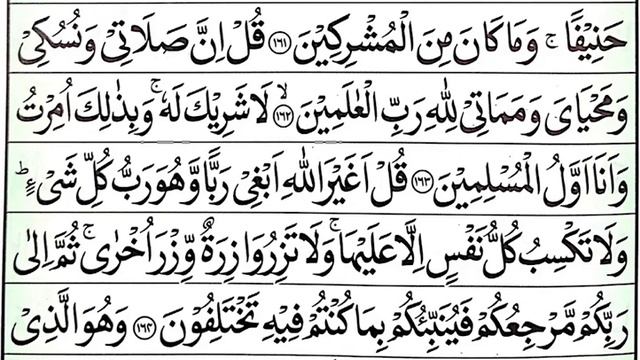 حَنِيْفًا ۚ وَمَا كَانَ مِنَ الْمُشْرِكِيْنَ ۝۱۶۱ قُلْ اِنَّ صَلَاتِىْ وَنُسُكِىْ
وَمَحْيَاىَ وَمَمَاتِىْ لِلّٰهِ رَبِّ الْعٰلَمِيْنَ ۝۱۶۲ۙ لَا شَرِيْكَ لَهٗ ۚ وَبِذٰلِكَ اُمِرْتُ
وَاَنَا اَوَّلُ الْمُسْلِمِيْنَ ۝۱۶۳ قُلْ اَغَيْرَ اللّٰهِ اَبْغِىْ رَبًّا وَّهُوَ رَبُّ كُلِّ شَىْءٍ ؕ
وَلَا تَكْسِبُ كُلُّ نَفْسٍ اِلَّا عَلَيْهَا ۚ وَلَا تَزِرُ وَازِرَةٌ وِّزْرَ اُخْرٰى ۚ ثُمَّ اِلٰى
رَبِّكُمْ مَّرْجِعُكُمْ فَيُنَبِّئُكُمْ بِمَا كُنْتُمْ فِيْهِ تَخْتَلِفُوْنَ ۝۱۶۴ وَهُوَ الَّذِىْ